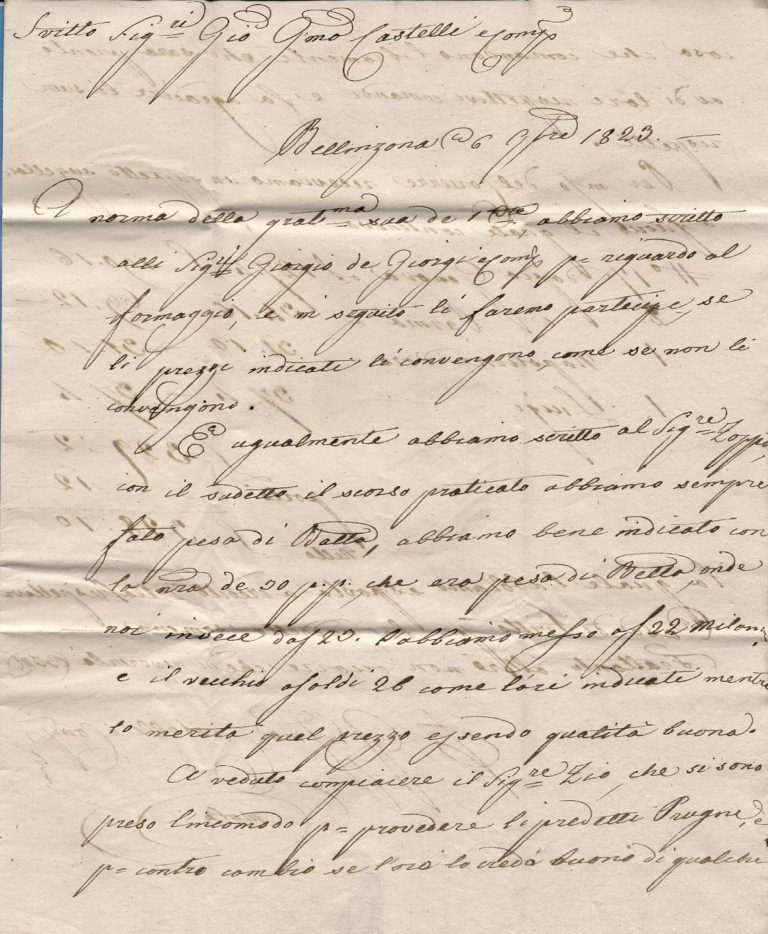 Svitto Sig.ri Gio Gmo Castelli e Comp
Bellinzona a 6 9bre 1823.
A norma della grat.ma sua de 1 abbiamo scritto
alli Sig.ri Giorgio de Giorgi e Comp p= riguardo al
formaggio, le in seguito li faremo partecipe, se
li prezzi indicati li convengono come se non li
convengono.
E ugualmente abbiamo scritto al Sig.re Zoppi,
con il sudetto il scorso praticato abbiamo sempre
fato pesa di Balla, abbiamo bene indicato con
la nra de 30 p.p. che era pesa di Bella, onde
noi invece da 23. l'abbiamo messo a 22 Milano
e il vecchio a soldi 26 come lori indicati mentre
lo merita quel prezzo essendo qualità buona.
A veduto compiacere il Sig.re Zio, che si sono
preso l'incomodo p= provedere li predetti Prugne, è
p= contro cambio se lori lo credà buono di qualche